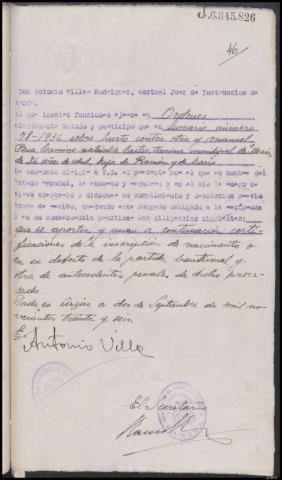 J.6.345.826
46
Don Antonio Villa Rodriguez, actual Juez de Instruccion de
Arzúa.
Al que iguales funciones ejerce en Ordenes
atentamente saludo y participo que en sumario número
78-1936 sobre hurto contra otro y Manuel
natural Castro término municipal de
de 26 años de edad, hijo de Ramón y de María
he acordado dirigir a V.S. el presente por el que en nombre del
Estado español, le exhorto y requiero y en el mio le ruego se
sirva aceptarlo y disponer su cumplimiento y devolucion previo
de recibo, quedando este Juzgado obligado a la
y en su consecuencia practicar las diligencias siguientes:
que se aporten y unan a continuación certi-
ficaciones de la inscripción de nacimiento o
en su defecto de la partida bautismal y
otra de antecedentes penales de dicho proce-
sado.
Dado en Arzúa a dos de Septiembre de mil no-
vecientos treinta y seis.
Antonio Villa
El Secretario